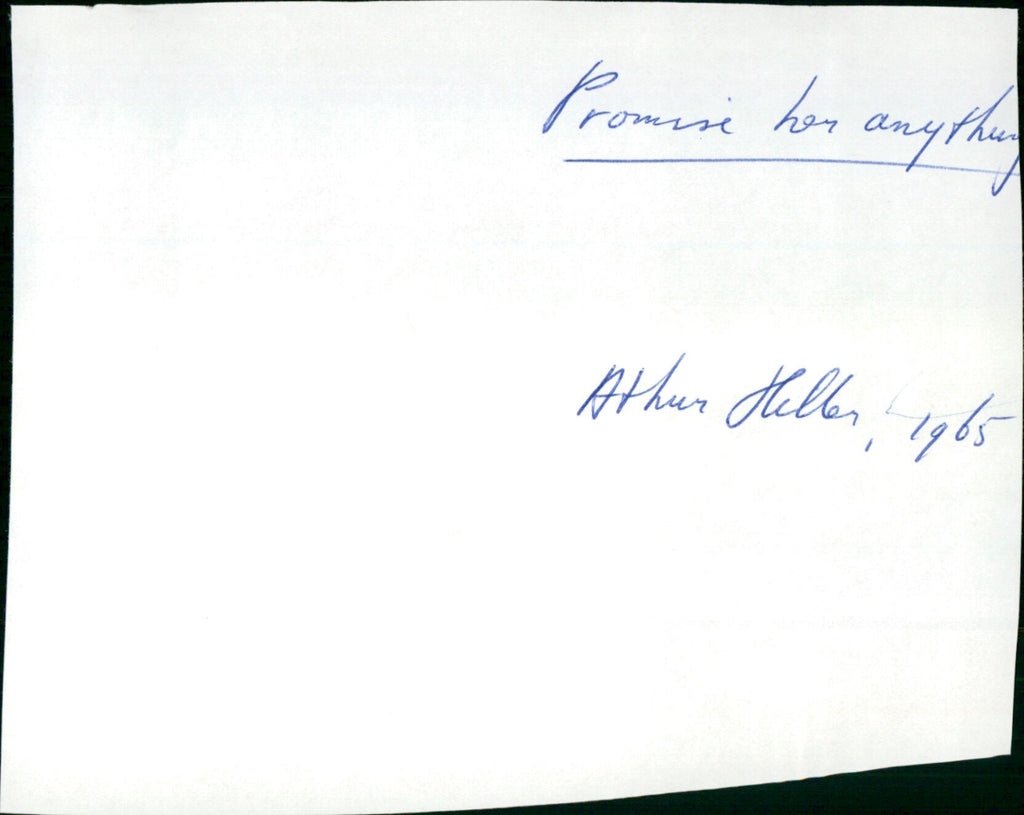 Promise her anything
Arthur Heller, 1965